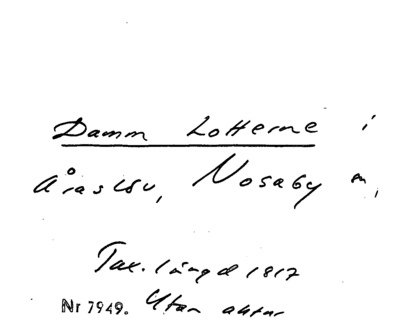 Damm Lotterne i
Åraslöv, Nosaby sn,
Tax. längd 1817
Nr 7949. Utan aktnr